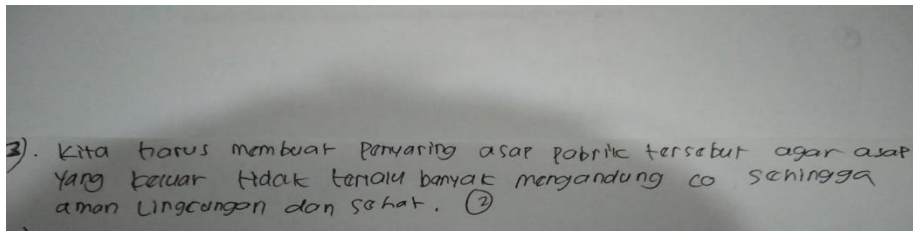 3). Kita harus membuat penyaring asap pabrik tersebut agar asap
yang keluar tidak terlalu banyak mengandung co sehingga
aman Lingcungan dan sehat. ②